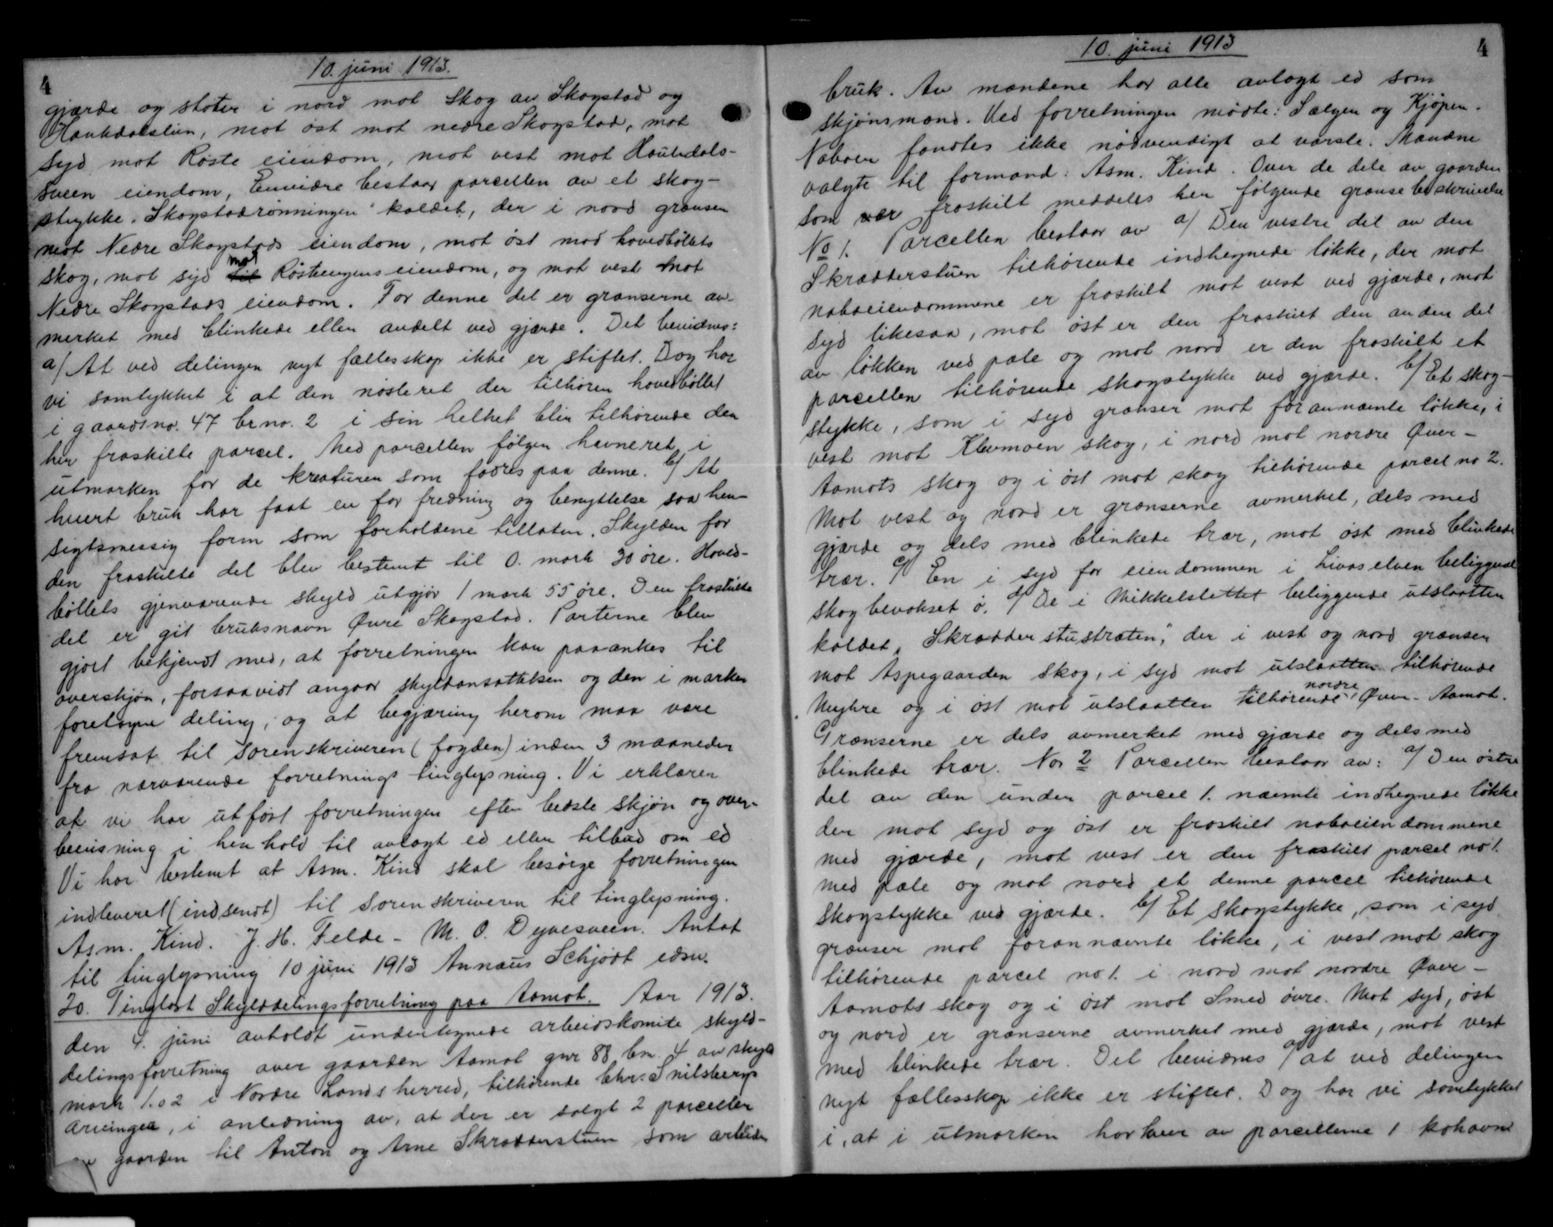 10. juni 1913.
4
gjærde og støter i nord mot Skog av Skogstad og
Haukdalslien, mot øst mot nedre Skogstad, mot
syd mot Røste eiendom, mot vest mot Haukdals-
sveen eiendom, Envidre bestaar parcellen av et skog-
stykke "Skogstadrønningen" kaldet, der i nord grænser
mot Nedre Skogstads eiendom, mot øst mod hovedbøllets
skog, mot syd mot Røstengens eiendom, og mot vest mot
Nedre Skogstads eiendom. For denne del er grænserne av
merket med blinkede eller andelt ved gjærde. Det bevidnes:
a/ At ved delingen nyt fællesskap ikke er stiftet. Dog har
vi samtykket i at den nøsteret der tilhører hovedbøllet
i gaardsno. 47 brno. 2 i sin helhet blir tilhørende den
her fraskilte parcel. Med parcellen følger havneret i
utmarken for de kreaturer som fødres paa denne. b/ At
hvert bruk har faat en for fredning og benyttelse saa hen-
sigtsmessig form som forholdene tillater. Skylden for
den fraskilte del blev bestemt til 0. mark 20 øre. Hoved-
bøllets gjenværende skyld utgjør 1 mark 55 øre. Den fraskilte
del er git bruksnavn Øvre Skogstad. Parterne blev
gjort bekjendt med, at forretningen kan paaankes til
overskjøn, forsaavidt angaar skyldansættelsen og den i marken
foretagne deling, og at begjæring herom maa være
fremsat til sorenskriveren (fogden) inden 3 maaneder
fra nærværende forretnings tinglysning. Vi erklærer
at vi har utført forretningen efter bedste skjøn og over-
bevisning i henhold til avlagt ed eller tilbud om ed
Vi har bestemt at Asm. Kind skal besørge forretningen
indleveret (indsendt) til sorenskriveren til tinglysning.
Asm. Kind. J. H. Felde - M. O. Dyvesveen. Antat
til tinglysning 10 juni 1913 Annæus Schjødt edsv.
20. Tinglæst Skylddelingsforretning paa Aamot. Aar 1913.
den 4. juni avholdt undertegnede arbeidskomite skyld-
delingsforretning over gaarden Aamot gnr 88, bn. 4 av skyld
mark 1.02 i Nordre Lands herred, tilhørende Chr. Snilsbergs
arvinger, i anledning av, at der er solgt 2 parceller
gaarden til Anton og Arne Skrædderstuen som arbeider
10. juni 1913
4
bruk. Av mændene har alle avlagt ed som
skjønsmænd. Ved forretningen mødte: Sælgen og Kjøpen.
Naboer fandtes ikke nødvendigt at varsle. Mændne
valgte til formand: Asm. Kind. Over de dele av gaarden
som er fraskilt meddeles her følgende grænsebeskrivelse
No 1. Parcellen bestaar av a/ Den vestre del av den
Skrædderstuen tilhørende indhegnede løkke, der mot
naboeiendommene er fraskilt mot vest ved gjærde, mot
syd likesaa, mot øst er den fraskilt den anden del
av løkken ved pæle og mot nord er den fraskilt et
parcellen tilhørende skogstykke ved gjærde. b/ Et skog-
stykke, som i syd grænser mot forannævnte løkke, i
vest mot Klevmoen skog, i nord mot nordre Øver-
Aamots skog og i øst mot skog tilhørende parcel no 2.
Mot vest og nord er grænserne avmerket, dels med
gjærde og dels med blinkede trær, mot øst med blinkede
trær. c/ En i syd for eiendommen i Livaselven beliggende
skogbevokset ø. d/ De i Mikkelslettet beliggende utslaatten
kaldet "Skrædderstustræten", der i vest og nord grænser
mot Aspegaarden skog, i syd mot utslaatten tilhørende
Myhre og i øst mot utslaatten tilhørende nordre Øver-Aamot.
Grænserne er dels avmerket med gjærde og dels med
blinkede trær. No 2 Parcellen bestaar av: a/ Den østre
del av den under parcel 1. nævnte indhegnede løkke
der mot syd og øst er fraskilt naboeiendommene
med gjærde, mot vest er den fraskilt parcel no 1.
med pæle og mot nord et denne parcel tilhørende
skogstykke ved gjærde. b/ Et skogstykke, som i syd
grænser mot forannævnte løkke, i vest mot skog
tilhørende parcel no 1. i nord mot nordre Øver-
Aamots skog og i øst mot Smed øvre. Mot syd, øst
og nord er grænserne avmerket med gjærde, mot vest
med blinkede trær. Det bevidnes a/ at ved delingen
nyt fællesskap ikke er stiftet. Dog har vi samtykket
i, at i utmarken har hver av parcellerne 1 kohavn